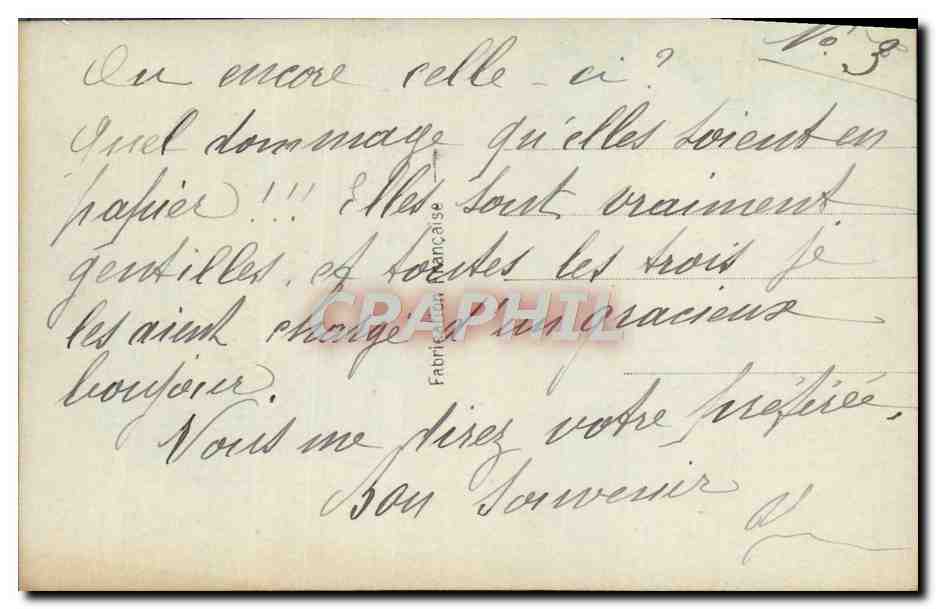 No. 3
Ou encore celle-ci ?
Quel dommage qu'elles soient en
papier !!! Elles sont vraiment
gentilles. et toutes les trois je
les aient chargé d'un gracieux
bonjour.
Vous me direz votre préférée.
Bon Souvenir
Fabrication Française
CRAPHIL